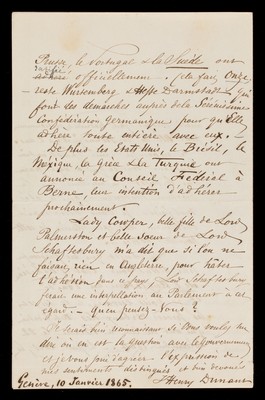 Prusse, le Portugal & la Suède ont
adhéré officiellement. (cela fait Onze
reste Wurtemberg & Hesse Darmstadt qui
font des démarches auprès de la Sérénissime
Confédération Germanique pour qu'Elle
adhère toute entière avec eux.
De plus les États Unis, le Brésil, le
Mexique, la Grèce & la Turquie ont
annoncé au Conseil Fédéral à
Berne, leur intention d'adhérer
prochainement.
Lady Cowper, belle fille de Lord
Palmerston et belle soeur de Lord
Schaftesbury m'a dit que si l'on ne
faisait rien en Angleterre pour hâter
l'adhésion dans ce pays, Lord Schaftesbury
ferait une interpellation au Parlement à cet
égard. - Qu'en pensez-vous?
Je serais bien reconnaissant si vous vouliez me
dire où en est la question avec le Gouvernement
et je vous prie d'agréer l'expression de
mes sentiments distingués et bien dévoués
Genève, 10 Janvier 1865. J Henry Dunant